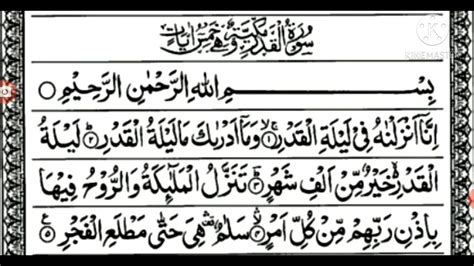 سورة القدر مكية وهي خمس آيات
بِسْمِ اللهِ الرَّحْمٰنِ الرَّحِيْمِ ○
اِنَّاۤ اَنْزَلْنٰهُ فِىْ لَيْلَةِ الْقَدْرِ ۚ۝۱ وَمَاۤ اَدْرٰىكَ مَا لَيْلَةُ الْقَدْرِ ؕ۝۲ لَيْلَةُ
الْقَدْرِ ۙ خَيْرٌ مِّنْ اَلْفِ شَهْرٍ ؕ۝۳ تَنَزَّلُ الْمَلٰٓئِكَةُ وَالرُّوْحُ فِيْهَا
بِاِذْنِ رَبِّهِمْ مِّنْ كُلِّ اَمْرٍ ۙ۝۴ سَلٰمٌ ۛ هِىَ حَتّٰى مَطْلَعِ الْفَجْرِ ۝۵